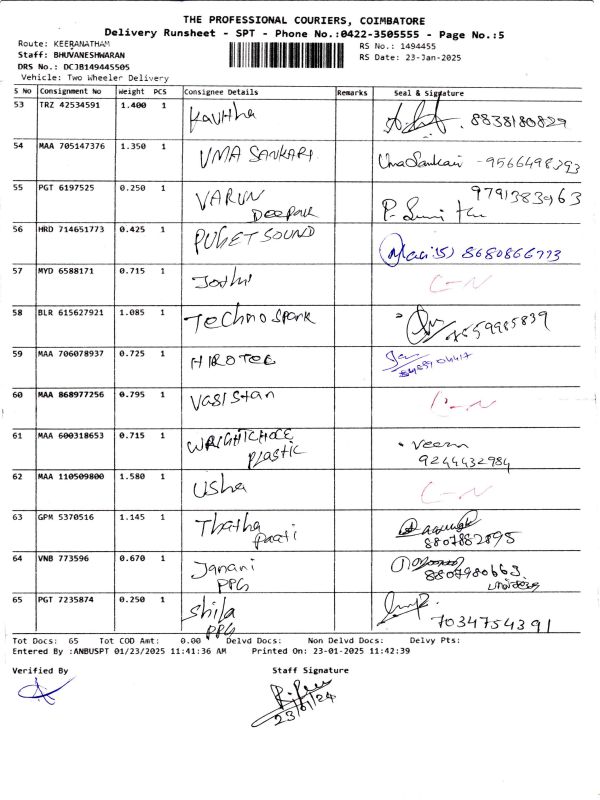 THE PROFESSIONAL COURIERS, COIMBATORE
Delivery Runsheet - SPT - Phone No.:0422-3505555 - Page No.:5
Route: KEERANATHAM
Staff: BHUVANESHWARAN
DRS No.: DCJB149445505
Vehicle: Two Wheeler Delivery
RS No.: 1494455
RS Date: 23-Jan-2025
S No Consignment No Weight PCS Consignee Details Remarks Seal & Signature
53 TRZ 42534591 1.400 1 Kavitha 8838180829
54 MAA 705147376 1.350 1 UMA SANKARI Uma Sankari - 9566498393
55 PGT 6197525 0.250 1 VARUN 9791383963
Deepak
56 HRD 714651773 0.425 1 PUGET SOUND 8680866773
57 MYD 6588171 0.715 1 Jothi C-N
58 BLR 615627921 1.085 1 Techno Spark 7559985839
59 MAA 706078937 0.725 1 HIROTEC
60 MAA 868977256 0.795 1 Vasistan C-N
61 MAA 600318653 0.715 1 WRIGHTCHOCE Veem
Plastic 9244432984
62 MAA 110509800 1.580 1 Usha C-N
63 GPM 5370516 1.145 1 Thatha
Paati 8807882895
64 VNB 773596 0.670 1 Janani
PPG 8807980663
65 PGT 7235874 0.250 1 Shila 7034754391
PPG
Tot Docs: 65 Tot COD Amt: 0.00 Delvd Docs: Non Delvd Docs: Delvy Pts:
Entered By :ANBUSPT 01/23/2025 11:41:36 AM Printed On: 23-01-2025 11:42:39
Verified By Staff Signature
23/01/24